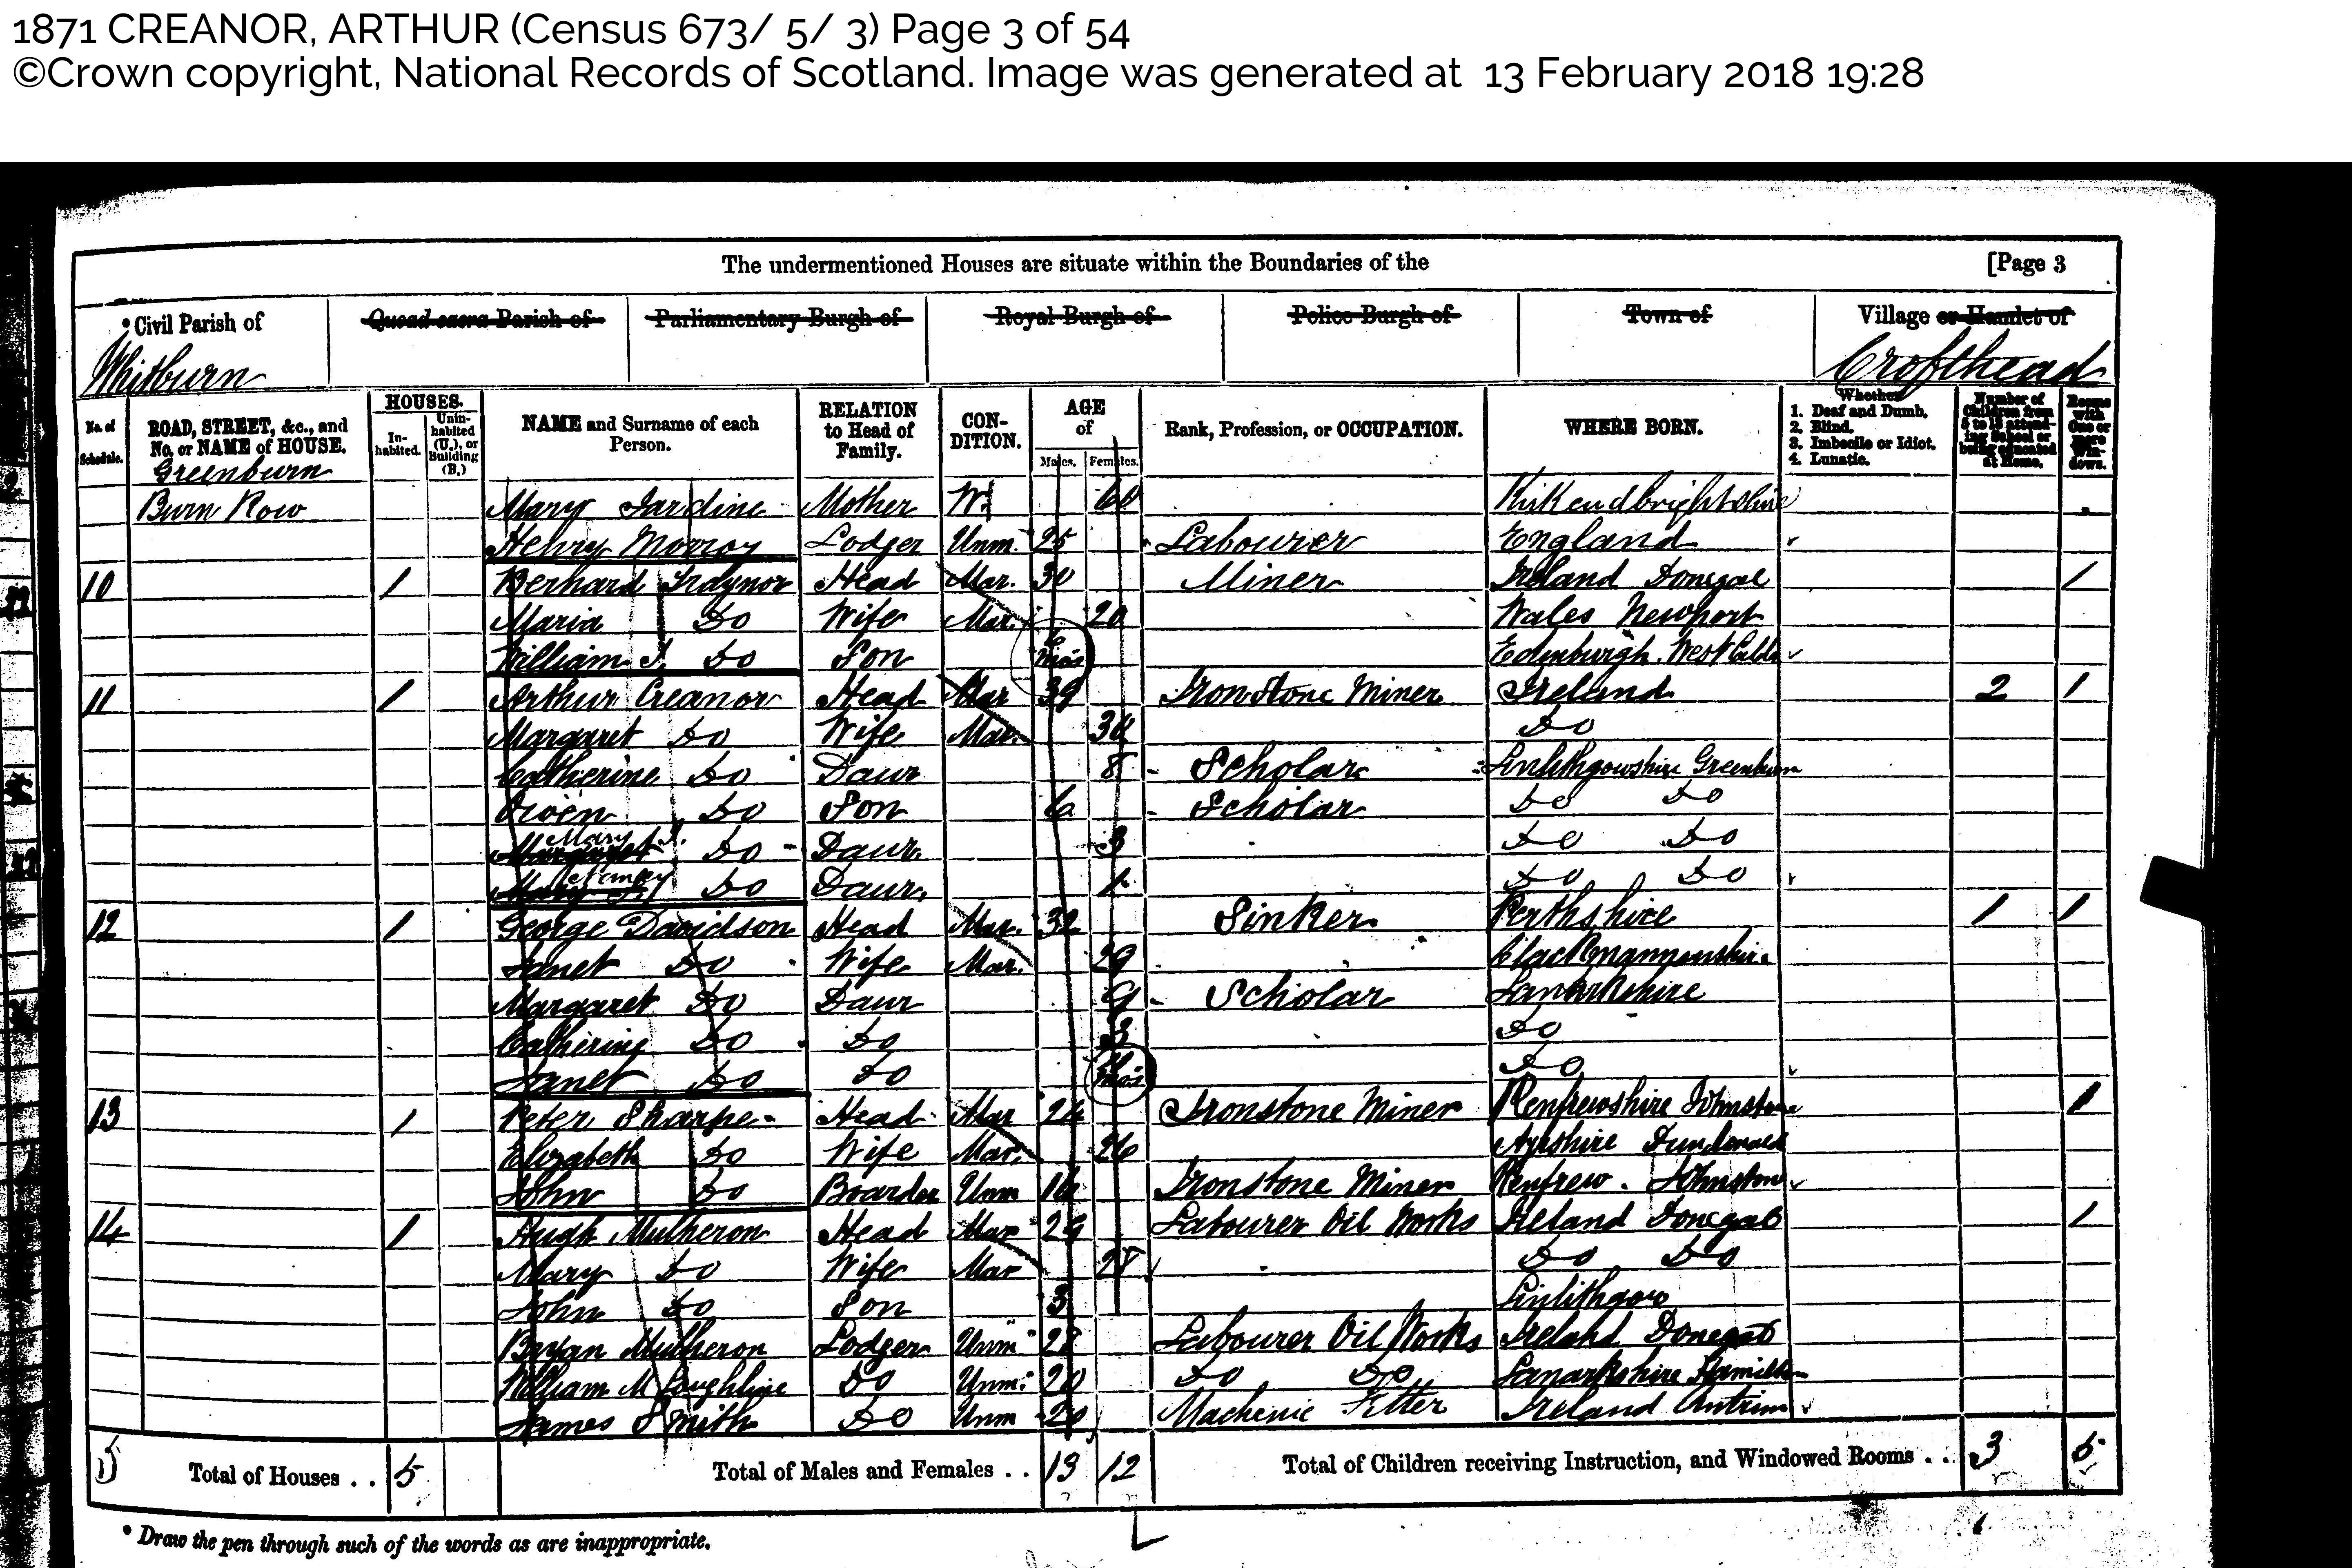 1871 CREANOR, ARTHUR (Census 673/ 5/ 3) Page 3 of 54
©Crown copyright, National Records of Scotland. Image was generated at 13 February 2018 19:28
The undermentioned Houses are situate within the Boundaries of the [Page 3
*Civil Parish of Quoad sacra Parish of Parliamentary Burgh of Royal Burgh of Police Burgh of Town of Village or Hamlet of
Whitburn Crofthead
No. of Schedule. ROAD, STREET, &c., and No. or NAME of HOUSE. HOUSES. Inhabited. Uninhabited (U.), or Building (B.) NAME and Surname of each Person. RELATION to Head of Family. CONDITION. AGE of Males. Females. Rank, Profession, or OCCUPATION. WHERE BORN. Whether 1. Deaf and Dumb. 2. Blind. 3. Imbecile or Idiot. 4. Lunatic. Number of Children from 5 to 13 attending School or being educated at Home. Rooms with One or more Windows.
Greenburn
Burn Row Mary Jardine Mother W. 60 Kirkcudbrightshire
Henry Morroy Lodger Unm. 25 Labourer England
10 1 Bernard Traynor Head Mar. 30 Miner Ireland Donegal 1
Maria Do Wife Mar. 20 Wales Newport
William J. Do Son 6 mos Edinburgh. West Calder
11 1 Arthur Creanor Head Mar 39 Ironstone Miner Ireland 2 1
Margaret Do Wife Mar. Do
Catherine Do Daur 8 Scholar Linlithgowshire Greenburn
Owen Do Son 6 Scholar Do Do
Mary J. Do Daur. 3 Do Do
Do Daur. 1 Do Do
12 1 George Davidson Head Mar. 32 Sinker Perthshire 1 1
Janet Do Wife Mar. 29 Clackmannanshire
Margaret Do Daur 9 Scholar Lanarkshire
Catherine Do Do 3 Do
Janet Do Do mos Do
13 1 Peter Sharpe Head Mar 24 Ironstone Miner Renfrewshire Johnstone 1
Elizabeth Do Wife Mar. 26 Ayrshire Dundonald
John Do Boarder Unm Ironstone Miner Renfrew. Johnstone
14 1 Hugh Mulheron Head Mar 29 Labourer Oil Works Ireland Donegal 1
Mary Do Wife Mar 28 Do Do
John Do Son 3 Linlithgow
Bryan Mulheron Lodger Unm 28 Labourer Oil Works Ireland Donegal
William McLoughline Do Unm. 20 Do Do Lanarkshire Hamilton
James Smith Do Unm 20 Machenic Fitter Ireland Antrim
5 Total of Houses . . 5 Total of Males and Females . . 13 12 Total of Children receiving Instruction, and Windowed Rooms . . 3 5
* Draw the pen through such of the words as are inappropriate.